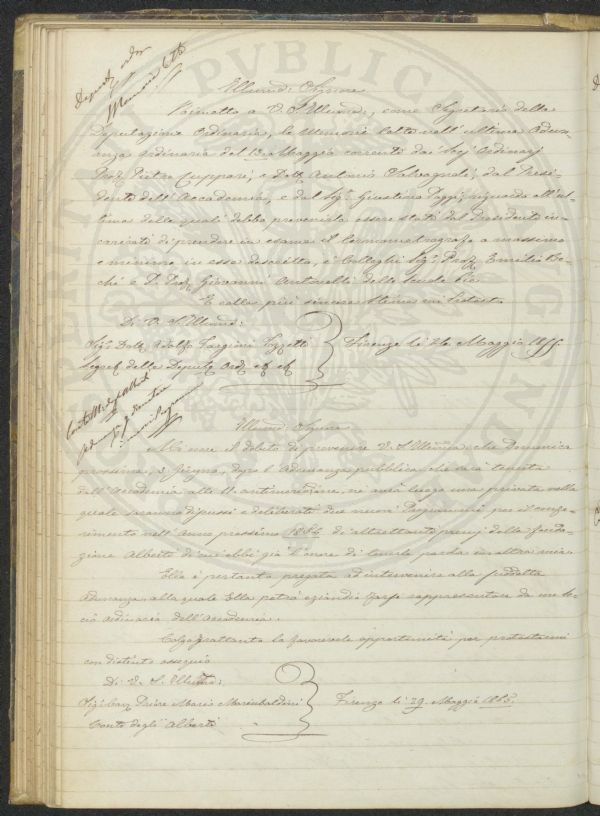 Deputaz. ord.
Memorie lette
Illustriss: Signore
Rimetto a V. S. Illuma:, come Segretario della
Deputazione Ordinaria, le Memorie lette nell'ultima Adunanza
ordinaria del 13 Maggio corrente dai Sigi Ordinarj
Prof. Pietro Cuppari, e Dott. Antonio Salvagnoli, dal Presi-
dente dell'Accademia, e dal Sigr. Giustino Paggi, riguardo all'ul-
tima delle quali debbo prevenirla essere stati dal Presidente in-
caricati di prendere in esame il termometrografo a massimo
e minimo in essa descritto, i Colleghi Sigi Prof. Emilio Be-
chi e P. Prof. Giovanni Antonelli delle Scuole Pie.
E colla più sincera stima mi protest.
Di V. S. Illuma:
Sigr. Dott. Adolfo Targioni Tozzetti
Segret. della Deputaz. Ord.
Firenze li Maggio
Conte degli Alberti
Adunanza
Programmi
Illumo: Signore
Mi onoro il debito di prevenire V. S. Illuma che Domenica
prossima, 3 Giugno, dopo l'Adunanza pubblica che sarà tenuta
dall'Accademia alle 11 antimeridiane, ne avrà luogo una privata nella
quale saranno discussi e deliberati due nuovi Programmi per il confe-
rimento nell'anno prossimo di altrettanti premj della fonda-
zione Alberti di cui ebbi già l'onore di tenerle parola in altra mia.
Ella è pertanto pregata ad intervenire alla suddetta
Adunanza, alla quale Ella potrà eziandio farsi rappresentare da un So-
cio ordinario dell'Accademia.
Colgo frattanto la favorevole opportunità per protestarmi
con distinto ossequio
Di V. S. Illuma:
Sigr. Cav. Priore Mario Mori Ubaldini
Conte degli Alberti
Firenze li 29 Maggio
PUBLICAE